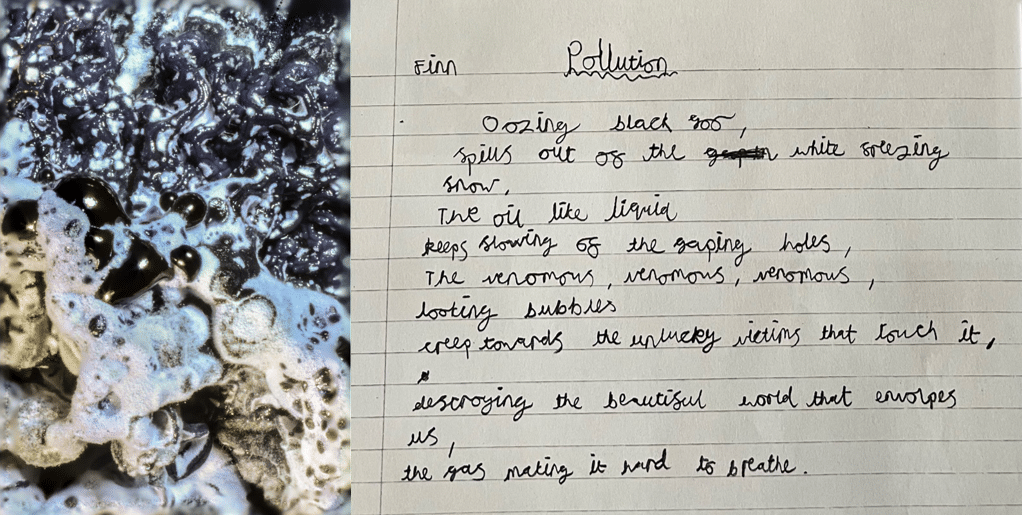 Finn
Pollution
Oozing black goo,
spills out of the white freezing
snow.
The oil like liquid
keeps flowing of the gaping holes,
The venomous, venomous, venomous,
looting bubbles
creep towards the unlucky victims that touch it,
descroying the beautiful world that envolpes
us,
the gas making it hard to breathe.